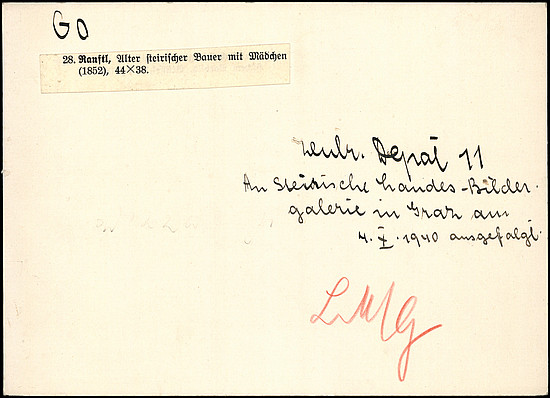 GO
28. Ranftl, Alter steirischer Bauer mit Mädchen
(1852), 44×38.
Zentr. Depot 11
An Steirische Landes-Bilder-
galerie in Graz am
4. X. 1940 ausgefolgt.
LMG